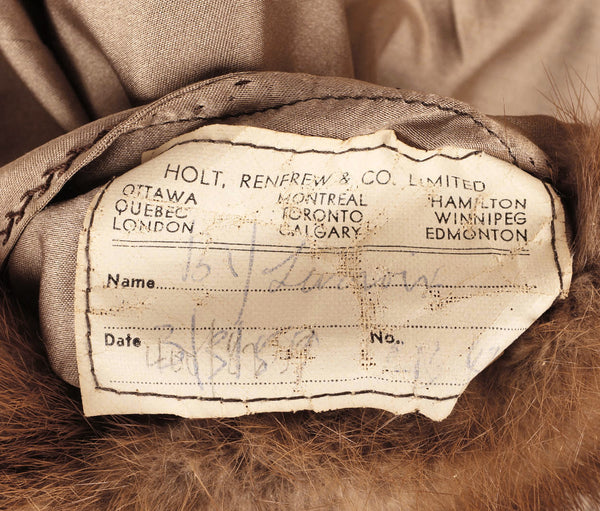 HOLT, RENFREW & CO. LIMITED
OTTAWA MONTREAL HAMILTON
QUEBEC TORONTO WINNIPEG
LONDON CALGARY EDMONTON
Name
Date No.